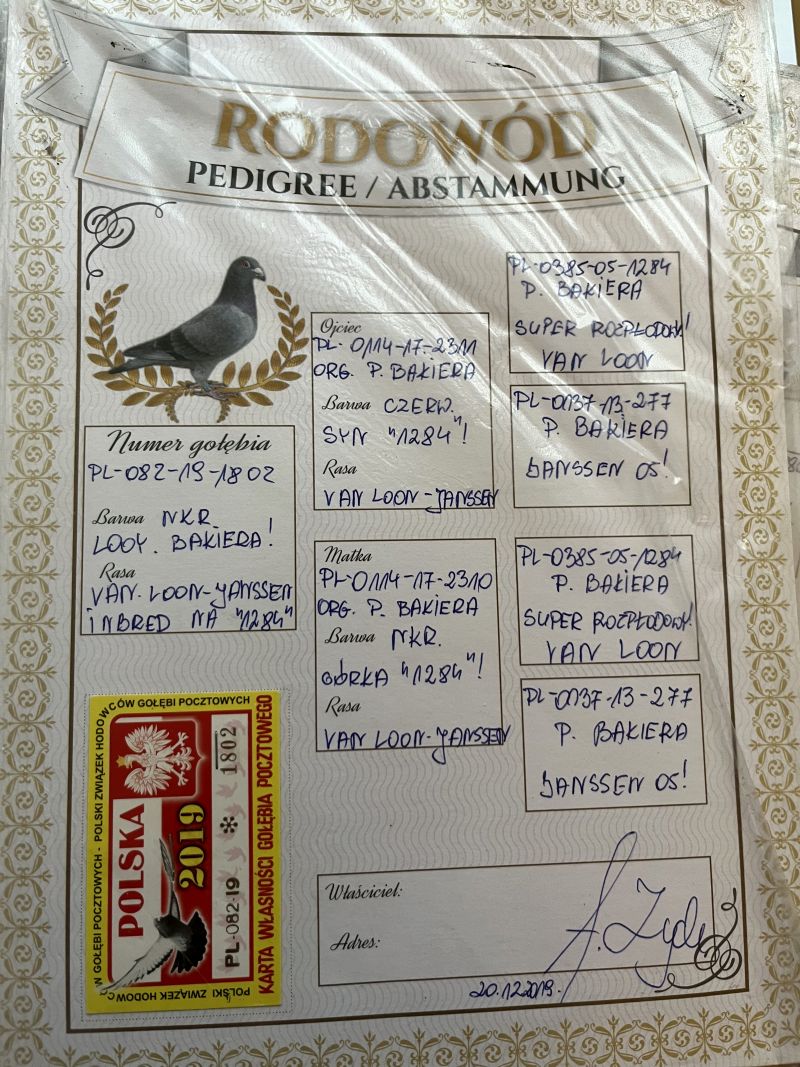 RODOWÓD
PEDIGREE / ABSTAMMUNG
Numer gołębia
PL-082-19-1802
Barwa NKR.
LOOY. BAKIERA!
Rasa
VAN LOON-JANSSEN
INBRED NA "1284"
Ojciec
PL-0114-17-2311
ORG. P. BAKIERA
Barwa CZERW.
SYN "1284"!
Rasa
VAN LOON-JANSSEN
Matka
PL-0114-17-2310
ORG. P. BAKIERA
Barwa NKR.
CÓRKA "1284"!
Rasa
VAN LOON-JANSSEN
PL-0385-05-1284
P. BAKIERA
SUPER ROZPŁODOWY!
VAN LOON
PL-0137-13-277
P. BAKIERA
JANSSEN OS!
PL-0385-05-1284
P. BAKIERA
SUPER ROZPŁODOWY!
VAN LOON
PL-0137-13-277
P. BAKIERA
JANSSEN OS!
W GOŁĘBI POCZTOWYCH - POLSKI ZWIĄZEK HODOWCÓW GOŁĘBI POCZTOWYCH
POLSKA
2019
PL-082-19 * 1802
KARTA WŁASNOŚCI GOŁĘBIA POCZTOWEGO
POLSKI ZWIĄZEK HODOWCÓ
Właściciel:
Adres:
20.12.2019.